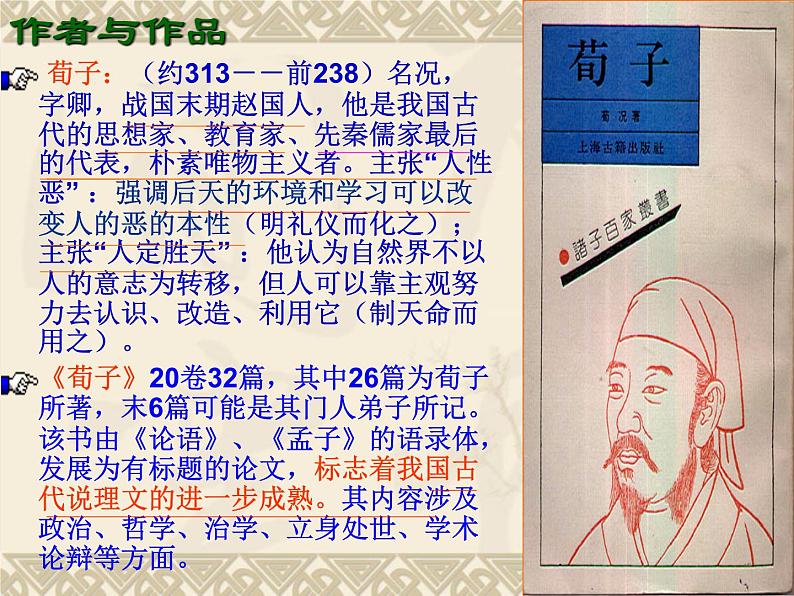 作者与作品
荀子：（约313－－前238）名况，
字卿，战国末期赵国人，他是我国古
代的思想家、教育家、先秦儒家最后
的代表，朴素唯物主义者。主张“人性
恶”：强调后天的环境和学习可以改
变人的恶的本性（明礼仪而化之）；
主张“人定胜天”：他认为自然界不以
人的意志为转移，但人可以靠主观努
力去认识、改造、利用它（制天命而
用之）。
《荀子》20卷32篇，其中26篇为荀子
所著，末6篇可能是其门人弟子所记。
该书由《论语》、《孟子》的语录体，
发展为有标题的论文，标志着我国古
代说理文的进一步成熟。其内容涉及
政治、哲学、治学、立身处世、学术
论辩等方面。
荀子
荀况著
上海古籍出版社
諸子百家叢書